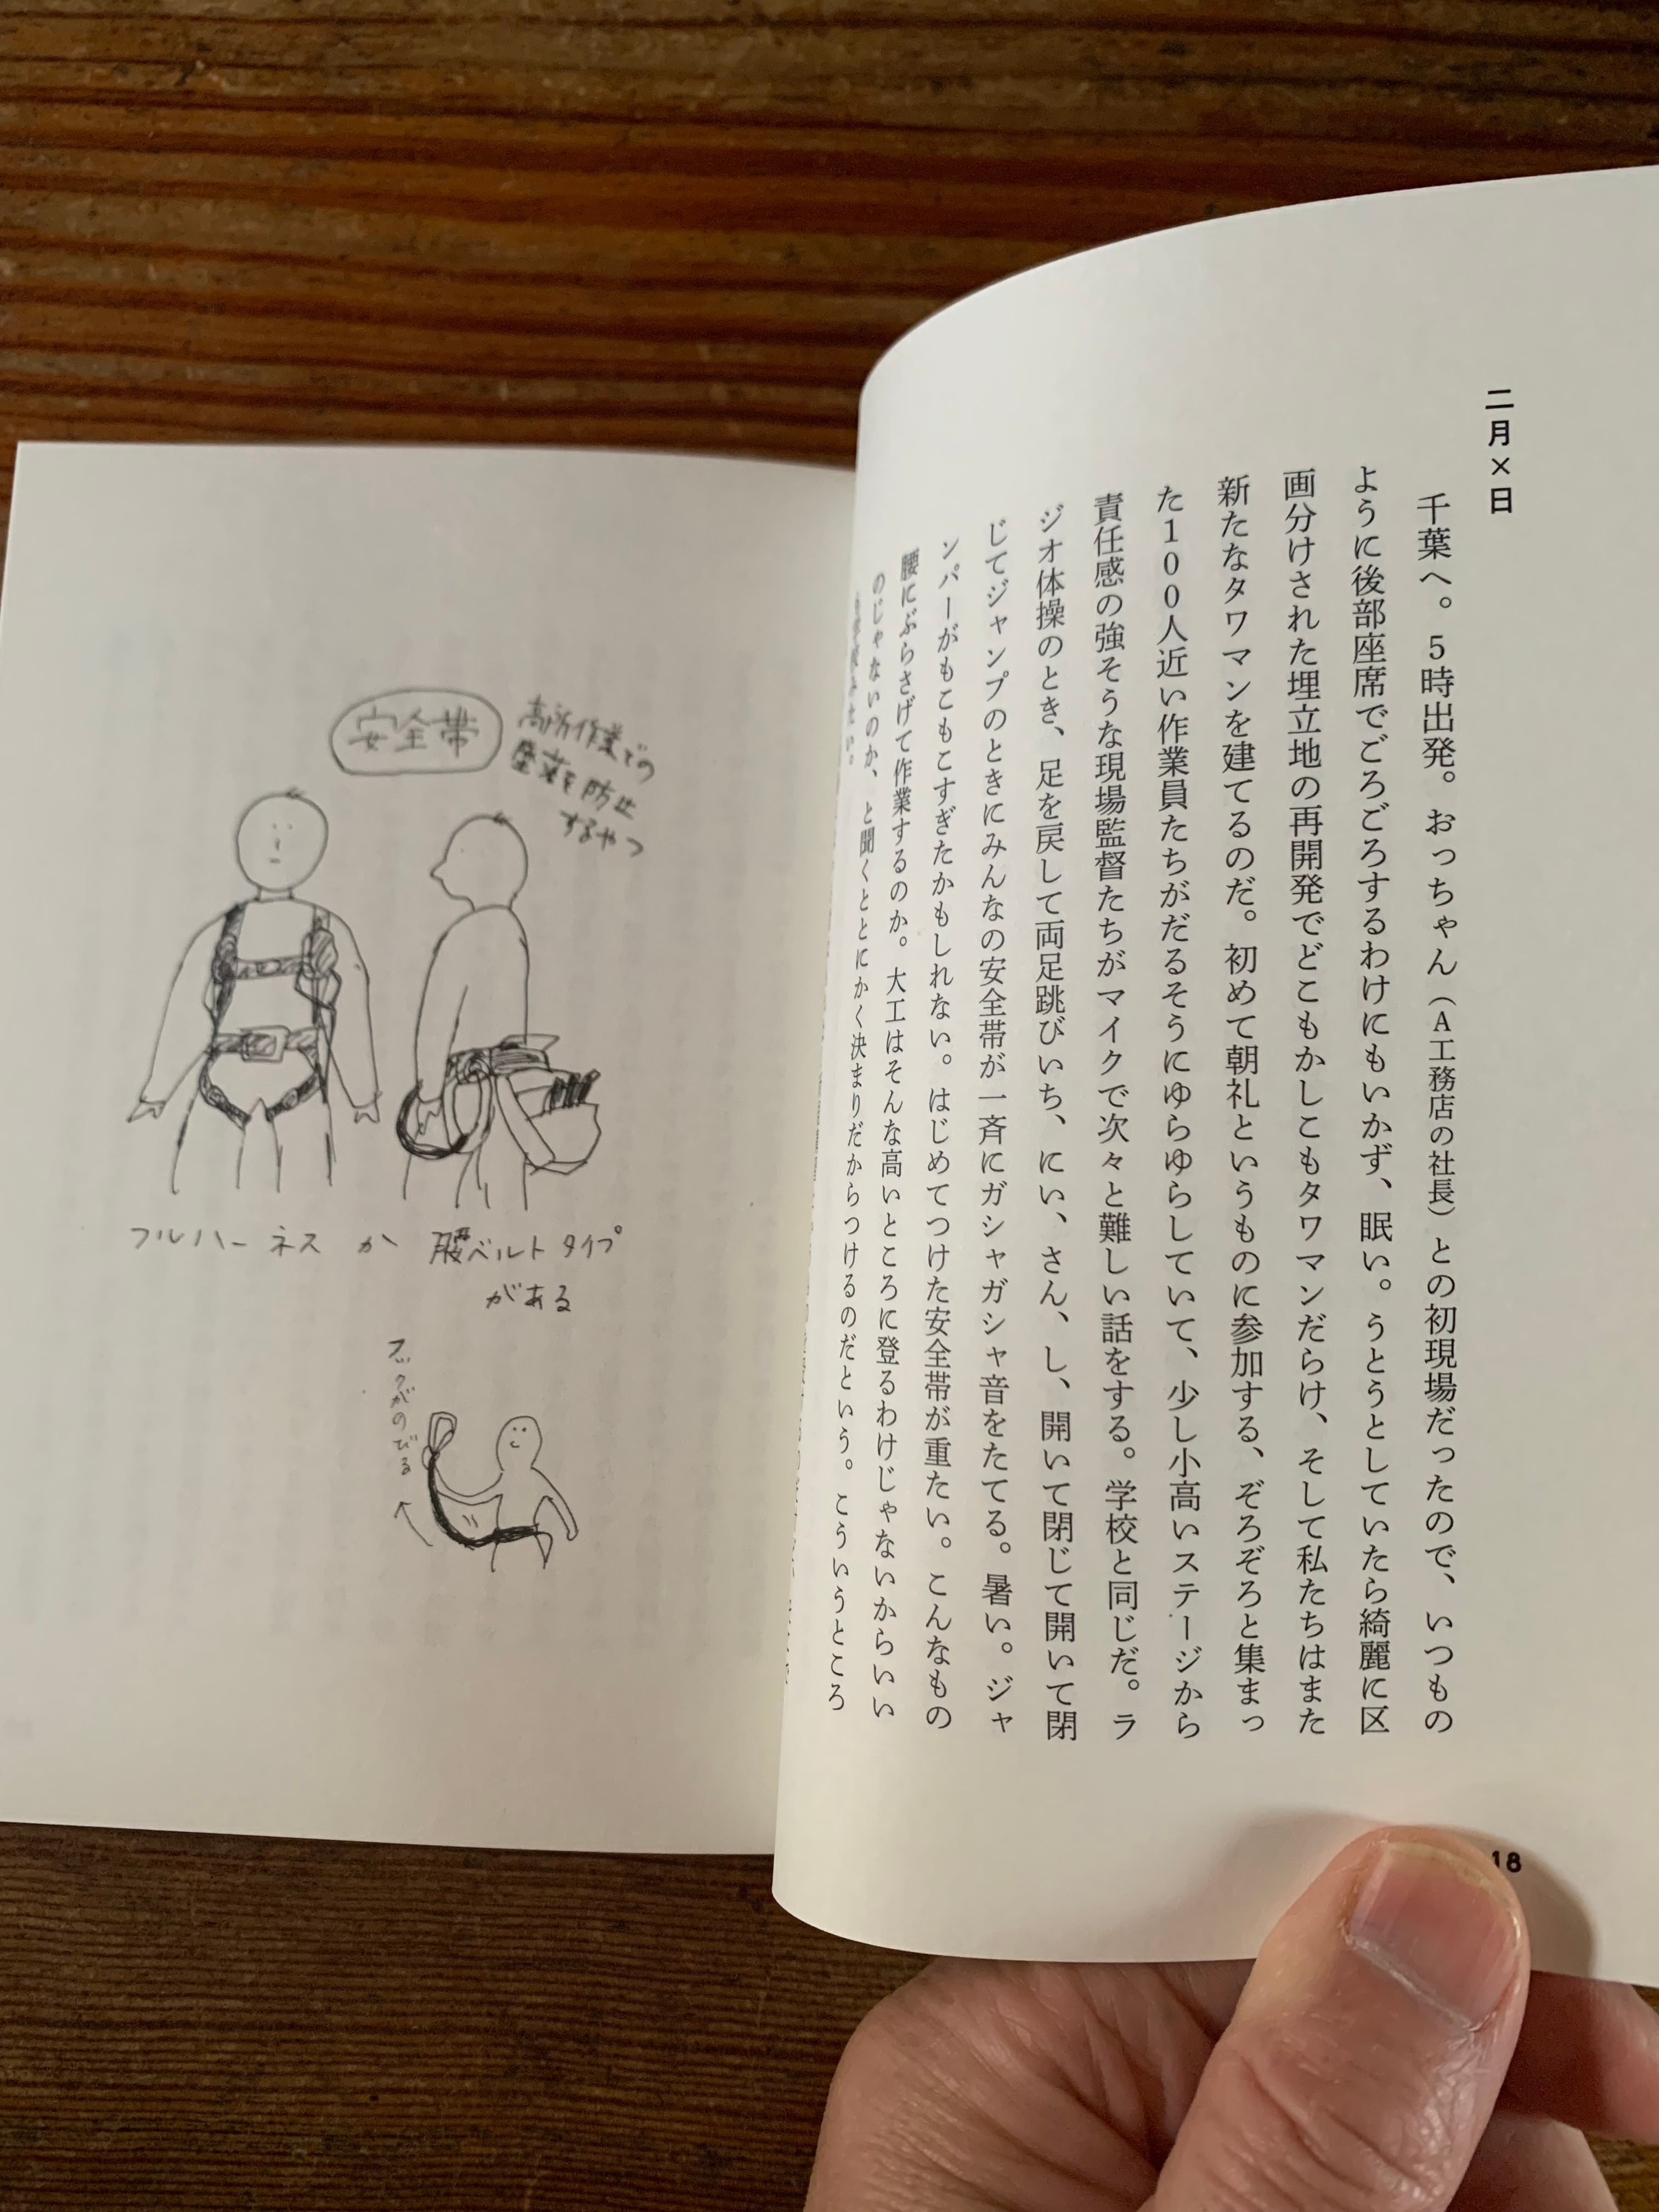 二月×日
千葉へ。5時出発。おっちゃん（A工務店の社長）との初現場だったので、いつもの
ように後部座席でごろごろするわけにもいかず、眠い。うとうとしていたら綺麗に区
画分けされた埋立地の再開発でどこもかしこもタワマンだらけ、そして私たちはまた
新たなタワマンを建てるのだ。初めて朝礼というものに参加する、ぞろぞろと集まっ
た100人近い作業員たちがだるそうにゆらゆらしていて、少し小高いステージから
責任感の強そうな現場監督たちがマイクで次々と難しい話をする。学校と同じだ。ラ
ジオ体操のとき、足を戻して両足跳びいち、にい、さん、し、開いて閉じて開いて閉
じてジャンプのときにみんなの安全帯が一斉にガシャガシャ音をたてる。暑い。ジャ
ンパーがもこもこすぎたかもしれない。はじめてつけた安全帯が重たい。こんなもの
腰にぶらさげて作業するのか。大工はそんな高いところに登るわけじゃないからいい
のじゃないのか、と聞くととにかく決まりだからつけるのだという。こういうところ
18
安全帯
高所作業での
墜落を防止
するやつ
フルハーネス か 腰ベルトタイプ
がある
フックがのびる